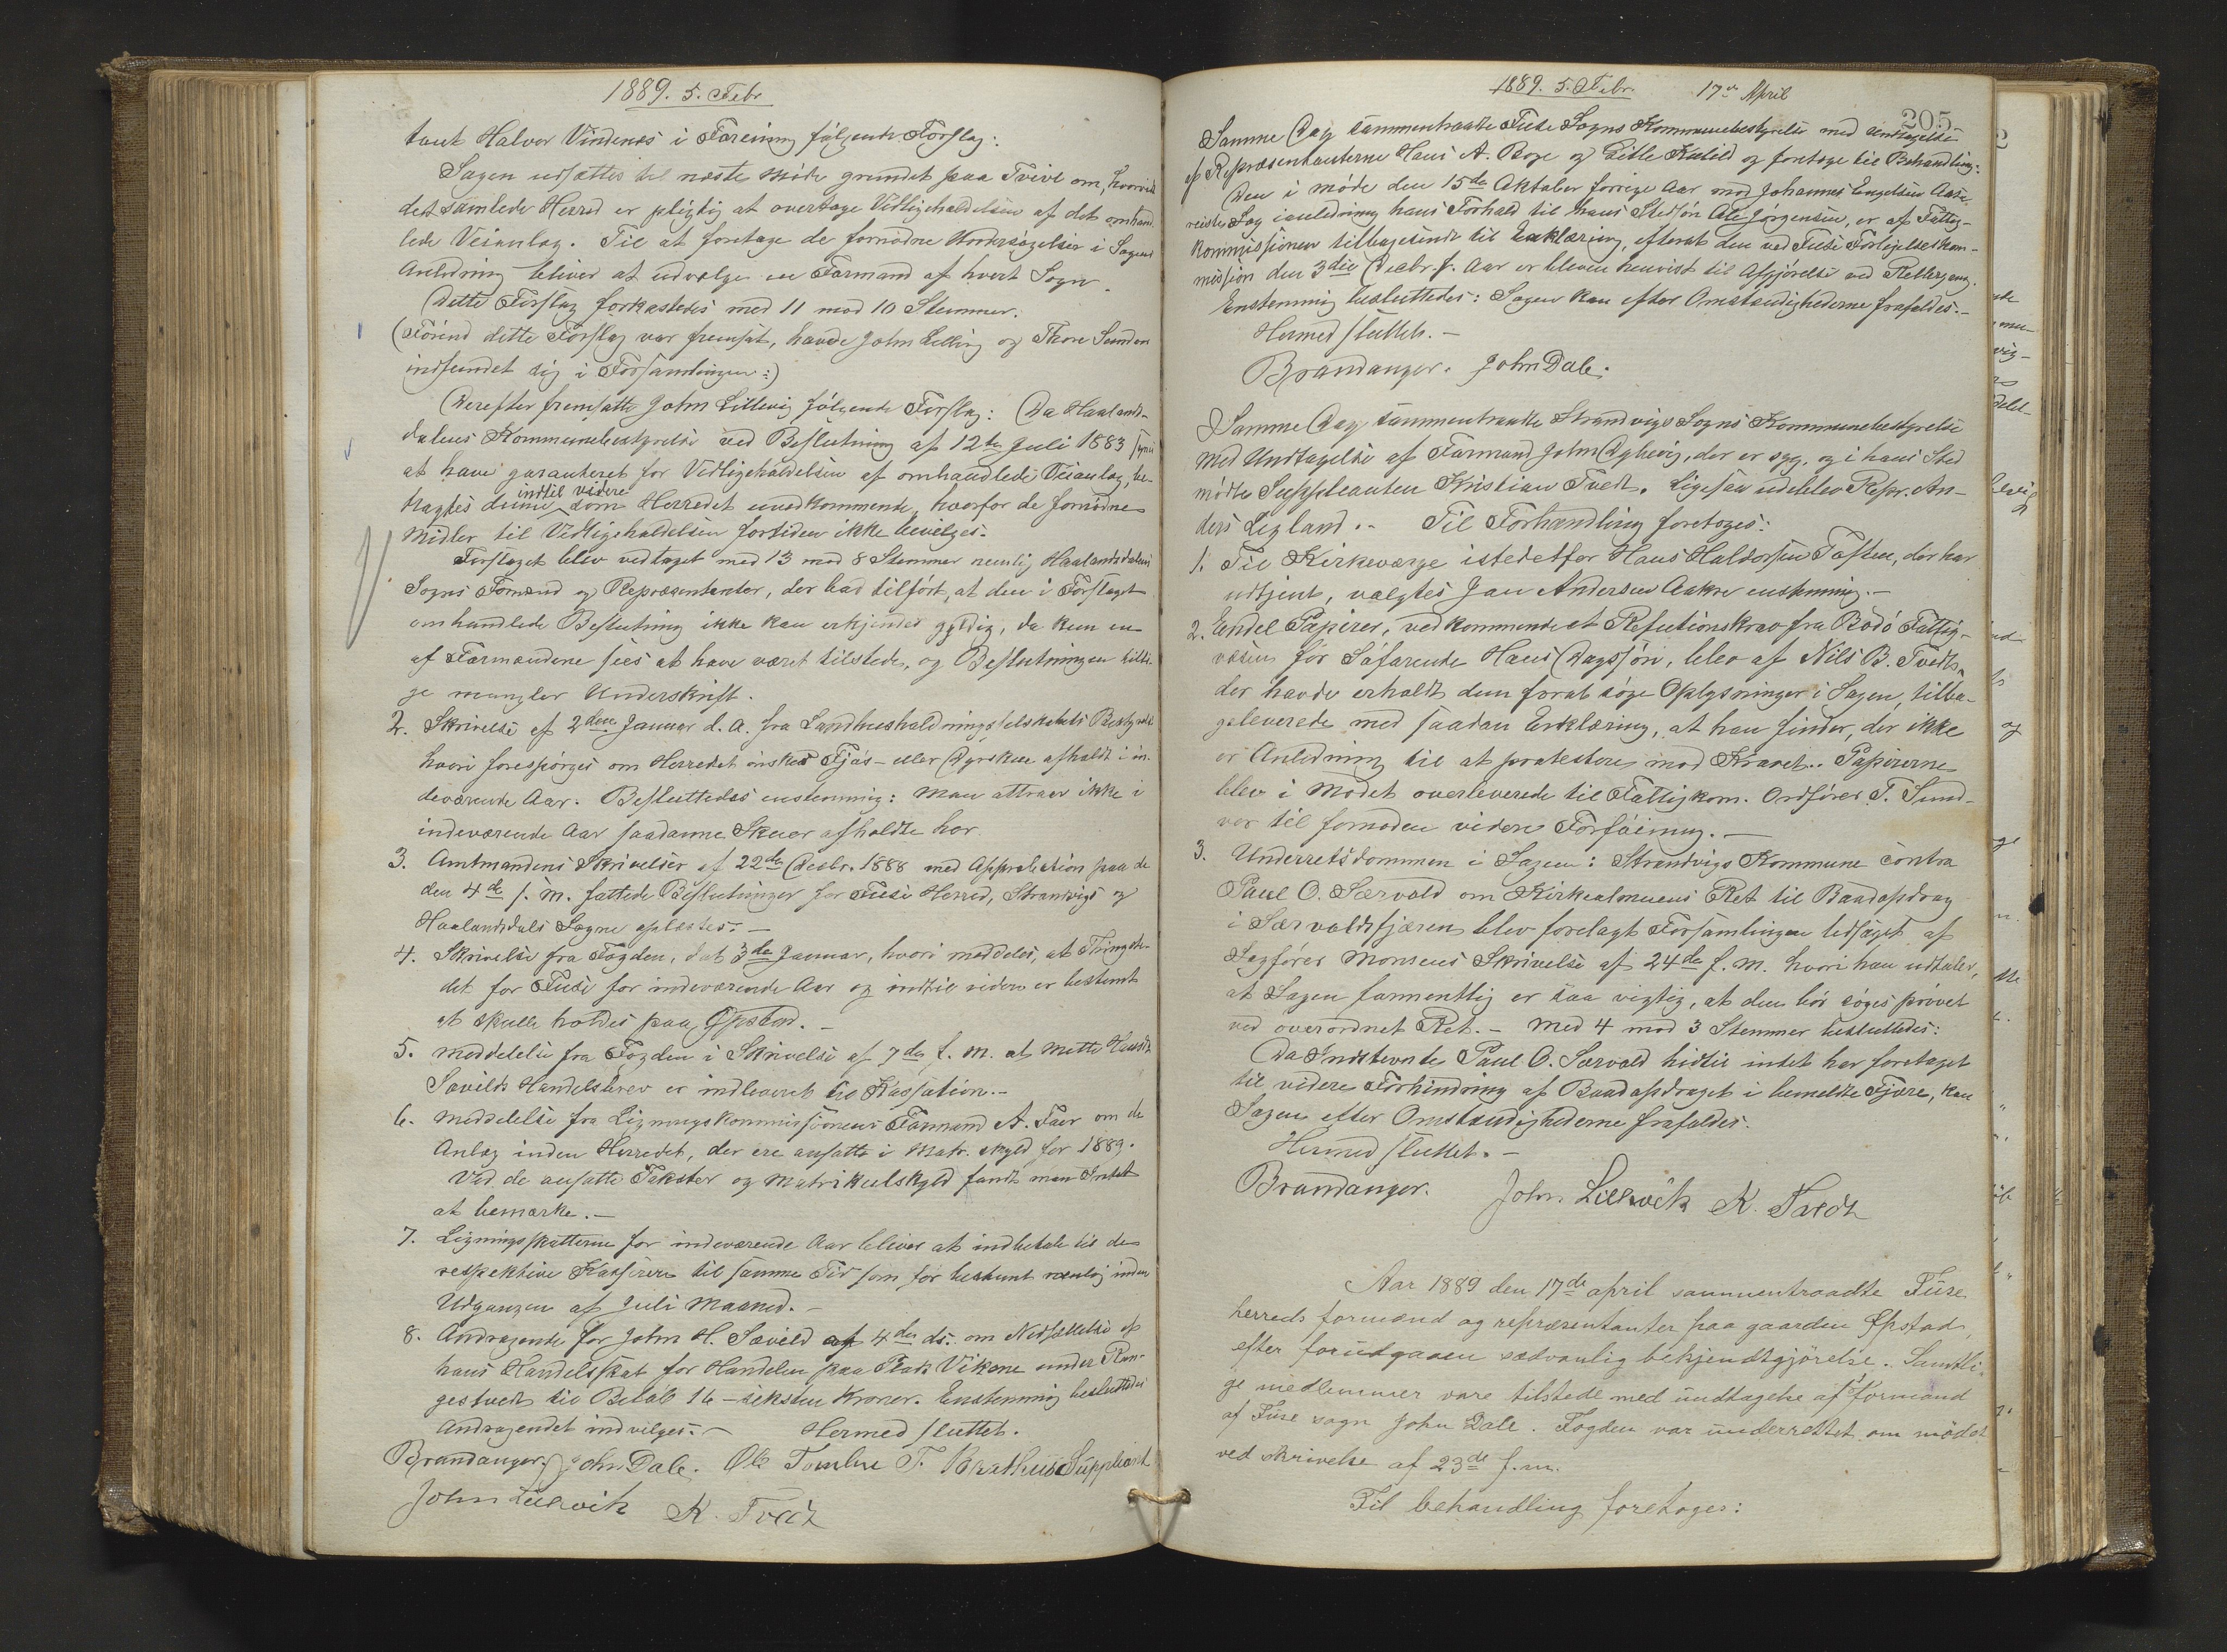 1889. 5. Febr
tant Halvor Vindenes i Forening følgende Forslag:
Sagen udsættes til næste Møde grundet paa Tvivl om, hvorvidt
det samlede Herred er pligtig at overtage Vedligeholdelsen af det omhand
lede Veianlæg. Til at foretage de fornødne Undersøgelser i Sagens
Anledning bliver at udvælge en Formand af hvert Sogn.
Dette Forslag forkastedes med 11 mod 10 Stemmer.
(Førend dette Forslag var fremsat, havde John Lillevig og Thore Sunden
indfundet sig i Forsamlingen:)
Derefter fremsatte John Lillevig følgende Forslag: Da Haalands-
dalens Kommunebestyrelse ved Beslutning af 12te Juli 1883 synes
at have garanteret for Vedligeholdelsen af omhandlede Veianlæg, be-
tragtes denne indtil videre som Herredet uvedkommende, hvorfor de fornødne
Midler til Vedligeholdelsen fortiden ikke bevilges.
Forslaget blev vedtaget med 13 mod 8 Stemmer nemlig Haalandsdalens
Sogns Formænd og Repræsentanter, der bad tilført, at den i Forslaget
omhandlede Beslutning ikke kan erkjendes gyldig, da kun en
af Formændene sees at have været tilstede, og Beslutningen tilli-
ge mangler Underskrift.
2. Skrivelse af 2den Januar d. A. fra Landhusholdningsselskabets Bestyrelse
hvori forespørges om Herredet ønsker Fjøs- eller Dyrskue afholdt i in-
deværende Aar. Besluttedes enstemmig: Man attraar ikke i
indeværende Aar saadanne Skuer afholdte her.
3. Amtmandens Skrivelser af 22de Decbr. 1888 med Approbation paa de
den 4de s. M. fattede Beslutninger for Fuse Herred, Strandvigs og
Haalandsdals Sogne oplæstes.-
4. Skrivelse fra Fogden, dat 3de Januar, hvori meddeles, at Thingste-
det for Fuse for indeværende Aar og indtil videre er bestemt
at skulle holdes paa Øpstad.-
5. Meddelelse fra Fogden i Skrivelse af 7de f. M. at Mette Hansdt.
Sævilds Handelsbrev er indleveret til Kassation.-
6. Meddelelse fra Ligningskommissionens Formand A. Faer om de
Anlæg inden Herredet, der ere ansatte i Matr. skyld for 1889.
Ved de ansatte Takster og Matrikulskyld fandt man Intet
at bemærke.-
7. Ligningsskatterne for indeværende Aar bliver at indbetale til de
respektive Kasserere til samme Tid som før bestemt nemlig inden
Udgangen af Juli Maaned.-
8. Andragende for John H. Sævild af 4de ds. om Nedsættelse af
hans Handelsskat for Handelen paa Plads Vikene under Ran-
gestvedt til Beløb 16 - seksten Kroner. Enstemmig besluttedes
Andragendet indvilges.- Hermed sluttet.
Brandanger, John Dale. Ole Tomlue T. Brathuse Suppleant
John Lillevik K. Tvedt
1889. 5. Febr. 17de April
205
Samme Dag sammentraadte Fuse Sogns Kommunebestyrelse med Undtagelse
af Repræsentanterne Hans A. Boge og Gitle Kulild og foretoges til Behandling:
Den i Møde den 15de Oktober forrige Aar mod Johannes Engelsen Aase
reiste Sag ianledning hans Forhold til hans Stedsøn Ole Jørgensen, er af Fattig-
kommissionen tilbagesendt til Erklæring, efterat den ved Fuse Forligelseskom-
mission den 3die Decbr. f. Aar er bleven henvist til Afgjørelse ved Rettergang.
Enstemmig besluttedes: Sagen kan efter Omstændighederne frafaldes.-
Hermed sluttet.-
Brandanger. John Dale.
Samme Dag sammentraadte Strandvigs Sogns Kommunebestyrelse
med Undtagelse af Formand John Dyhevig, der er syg, og i hans Sted
mødte Suppleanten Kristian Tvedt. Ligesaa udeblev Repr. An-
ders Legland.- Til Forhandling foretoges:
1. Til Kirkeværge istedetfor Hans Haldorsen Toften, der har
udtjent, valgtes Jan Andersen Aakre enstemmig.-
2. Endel Papirer, vedkommende et Refutionskrav fra Bodø Fattig-
væsen for Søfarende Hans Dagssøn, blev af Nils B. Tvedt,
der havde erholdt dem forat søge Oplysninger i Sagen, tilba-
geleverede med saadan Erklæring, at han finder, der ikke
er Anledning til at protestere mod Kravet.. Papirerne
blev i Mødet overleverede til Fattigkom. Ordfører T. Sund-
vor til fornøden videre Forføining.-
3. Underretsdommen i Sagen: Strandvigs Kommune contra
Paul O. Særvold om Kirkealmuens Ret til Baadopdrag
i Særvoldsfjæren blev forelagt Forsamlingen ledsaget af
Sagfører Monsens Skrivelse af 24de f. M. hvori han udtaler,
at Sagen formentlig er saa vigtig, at den bør søges prøvet
ved overordnet Ret.- Med 4 mod 3 Stemmer besluttedes:
Da Indstevnte Paul O. Særvold hidtil intet har foretaget
til videre Forhindring af Baadopdraget i bemeldte Fjære, kan
Sagen efter Omstændighederne frafaldes.
Hermed sluttet.-
Brandanger. John. Lillevik K. Tvedt
Aar 1889 den 17de april sammentraadte Fuse
herreds formænd og repræsentanter paa gaarden Øpstad,
efter forudgaaen sædvanlig bekjendtgjørelse. Samtli-
ge medlemmer vare tilstede med undtagelse af formand
af Fuse sogn John Dale. Fogden var underrettet om mødet
ved skrivelse af 23de f.m.
Til behandling foretoges: